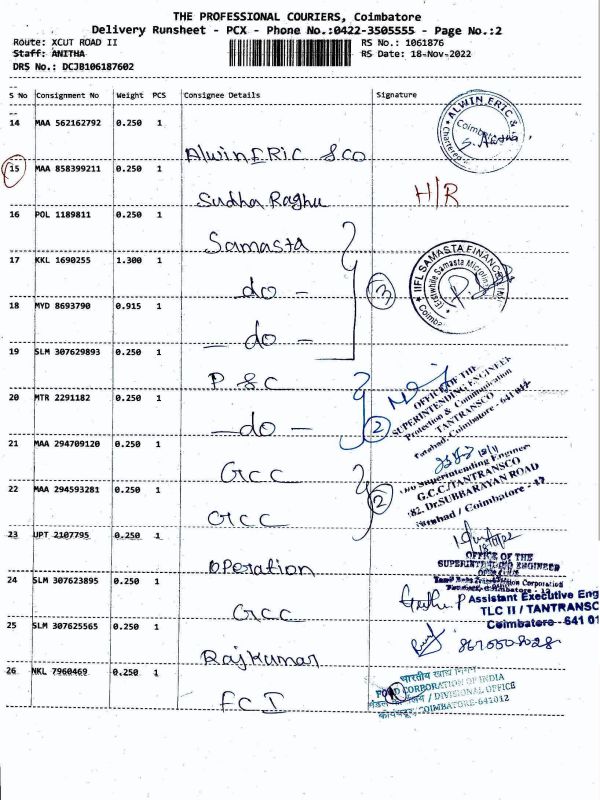 THE PROFESSIONAL COURIERS, Coimbatore
Delivery Runsheet - PCX - Phone No.:0422-3505555 - Page No.:2
Route: XCUT ROAD II RS No.: 1061876
Staff: ANITHA RS Date: 18-Nov-2022
DRS No.: DCJB106187602
S No Consignment No Weight PCS Consignee Details Signature
14 MAA 562162792 0.250 1
AlwinERic & CO
ALWIN ERIC &
15 MAA 858399211 0.250 1
Sudha Raghu H/R
16 POL 1189811 0.250 1
Samasta
17 KKL 1690255 1.300 1
— do — 3
IIFL SAMASTA FINANCE
(Erstwhile Samasta
18 MYD 8693790 0.915 1
— do —
19 SLM 307629893 0.250 1
P & C
20 MTR 2291182 0.250 1
— do — 2
OFFICE OF THE
SUPERINTENDING ENGINEER
Protection & Communication
TANTRANSCO
Tatabad, Coimbatore - 641 012
21 MAA 294709120 0.250 1
GCC
Superintending Engineer
G.C.C./TANTRANSCO
182, Dr.SUBBARAYAN ROAD
Tatabad / Coimbatore - 12
22 MAA 294593281 0.250 1
GCC 2
23 UPT 2107795 0.250 1
Operation
OFFICE OF THE
SUPERINTENDING ENGINEER
24 SLM 307623895 0.250 1
GCC
Assistant Executive Eng
TLC II / TANTRANSC
Coimbatore - 641 01
25 SLM 307625565 0.250 1
Rajkumar
26 NKL 7960469 0.250 1
FCI
भारतीय खाद्य निगम
FOOD CORPORATION OF INDIA
मंडल कार्यालय / DIVISIONAL OFFICE
कोयम्बटूर, COIMBATORE-641012